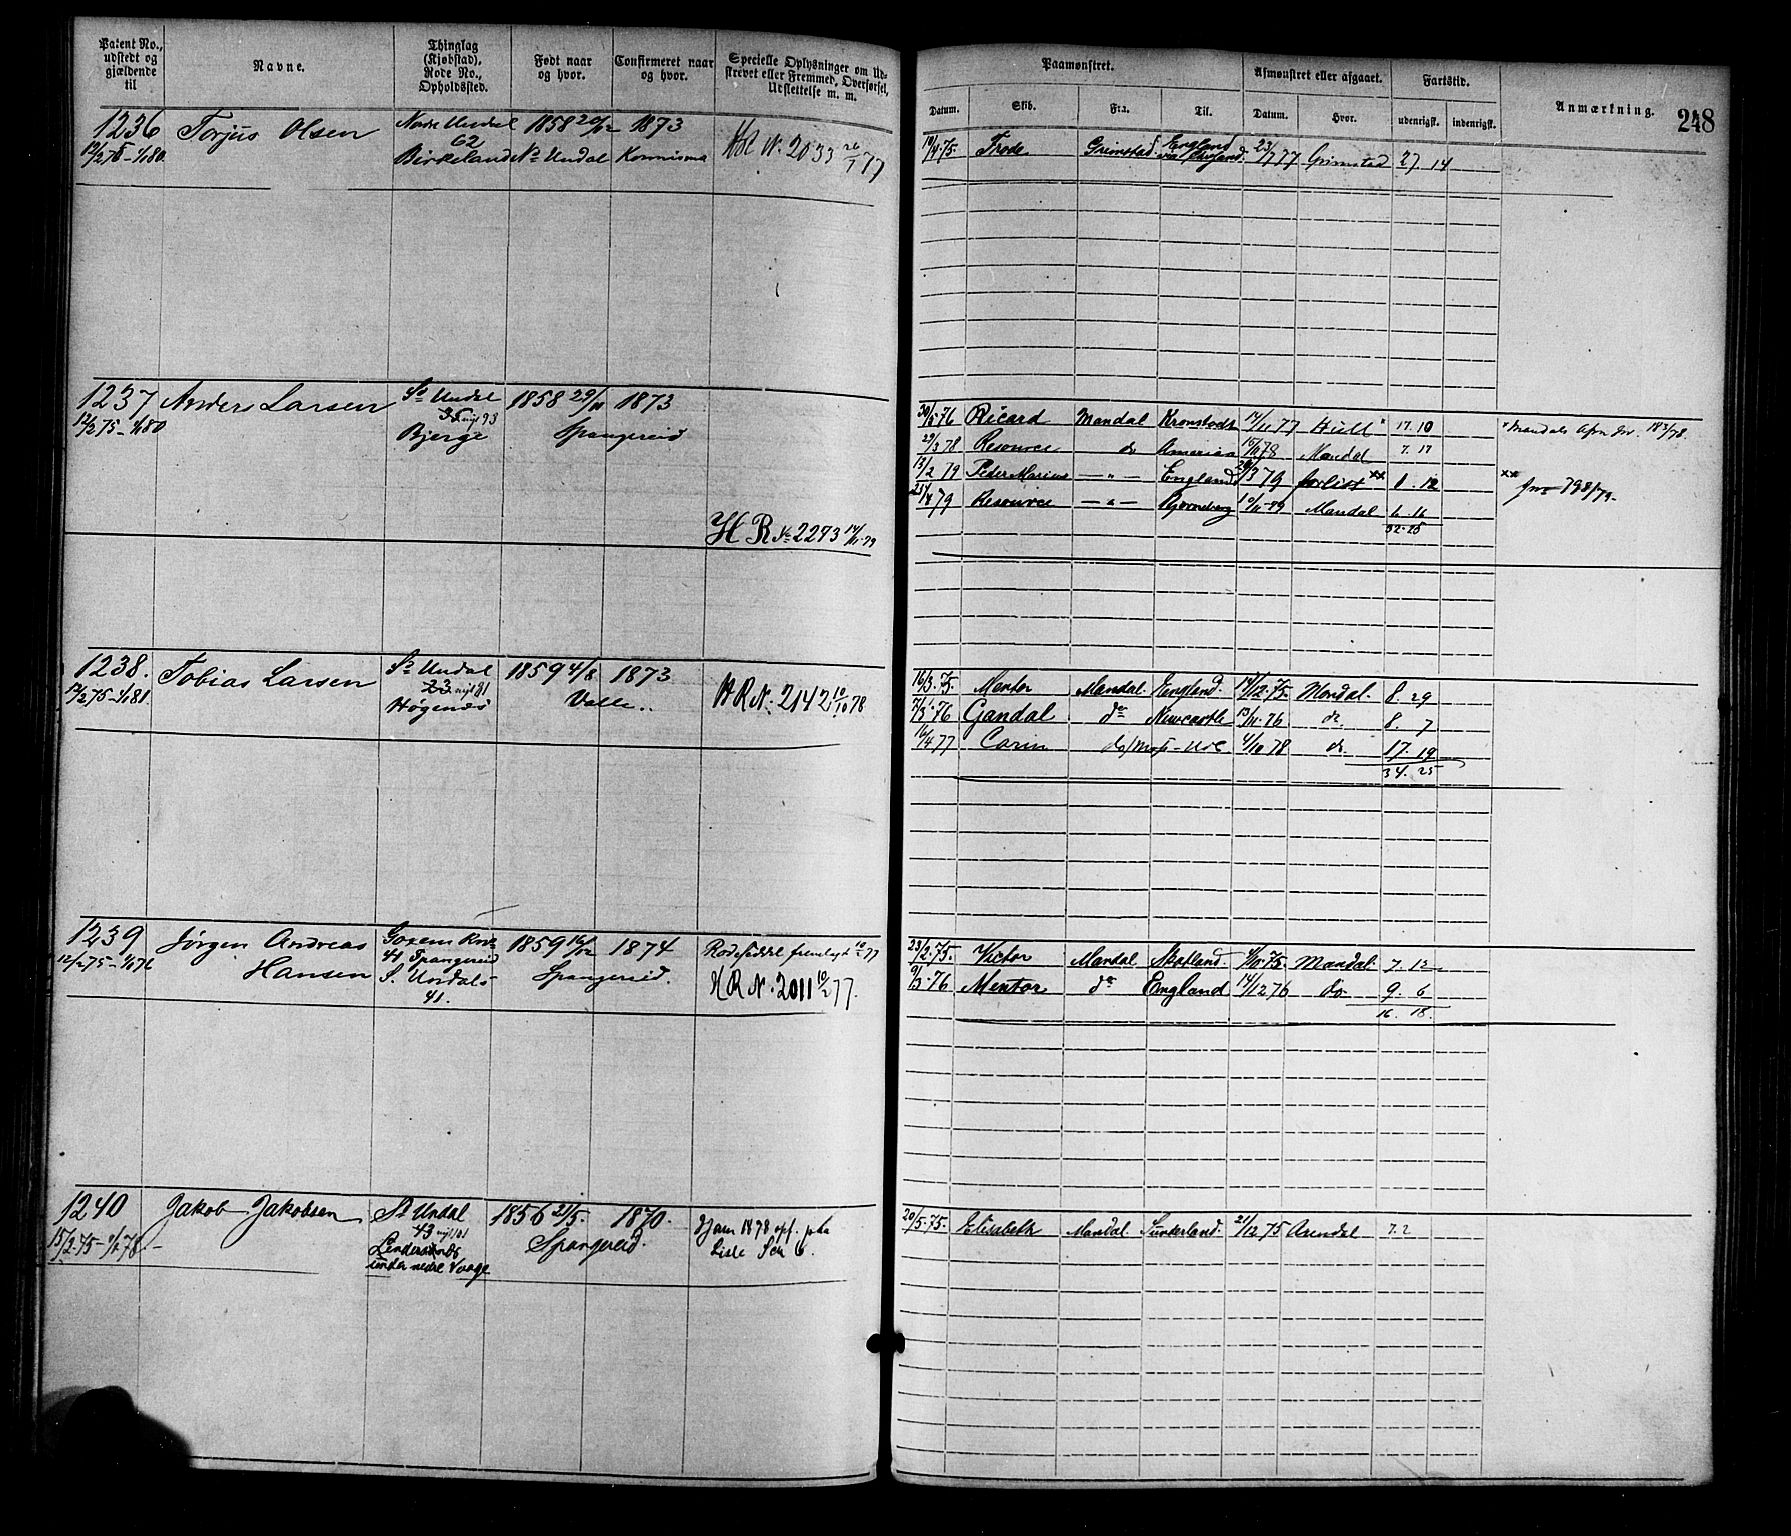 Patent No., udstedt og gjældende til
Navne.
Thinglag (Kjøbstad), Rode No., Opholdssted.
Født naar og hvor.
Confirmeret naar og hvor.
Specielle Oplysninger om Udstrevet eller Fremmed, Overførsel, Udslettelse m. m.
Paamønstret.
Afmønstret eller afgaaet.
Fartstid.
Anmærkning.
248
Datum.
Skib.
Fra.
Til.
Datum.
Hvor.
udenrigsk.
indenrigsk.
1236 Torjus Olsen Nordre Undal 1858 20/12 1873
12/2 75 - 1/1 80. 62
Birkeland No Undal Konnismo
HR N. 2033 26/1 77
19/4 75. Frode Grimstad England 23/1 77 Grimstad 27. 14
1237 Anders Larsen So Undal 1858 29/11 1873
12/2 75 - 1/1 80 93
Bjerge Spangereid
H R No 2293 14/11 79
30/5 76 Ricard Mandal Kronstadt 14/11 77 Hull 17. 10
29/3 78 Resource do America 15/11 78 Mandal 7. 17
13/2 79 Peder Marius — " — England 29/3 79 forlist xx 1. 12
21/4 79 Resource — " — Mandal 6 16
32. 25
1238. Tobias Larsen So Undal 1859 4/8 1873
12/2 75 - 1/1 81 23
Høgenæs Valle..
HR N. 2142 10/10 78
16/3. 75. Mentor Mandal England. 14/12. 75. Mandal. 8. 29
21/3 76 Gandal do Newcastle 13/11. 76 do. 8. 7
16/4 77 Carin 4/10 78 do. 17. 19
34. 25
1239 Jørgen Andreas 1859 16/12 1874
12/2 75 Hansen 41 Spangereid Spangereid.
S. Undals
41.
HR N. 2011 10/2 77.
23/2. 75. Victor Mandal Skotland. 75. Mandal. 7. 12
9/3. 76 Mentor do England 14/12 76 do. 9. 6
16. 18.
1240 Jakob Jakobsen So Undal 1856 21/5. 1870.
15/2. 75 - 78 43
Lindesnæs Spangereid.
under nedre Vaage
Hjem 1878 opf. paa
Liste
20/5. 75. Elisabeth Mandal. Sunderland. 21/12 75 Arendal 7. 2